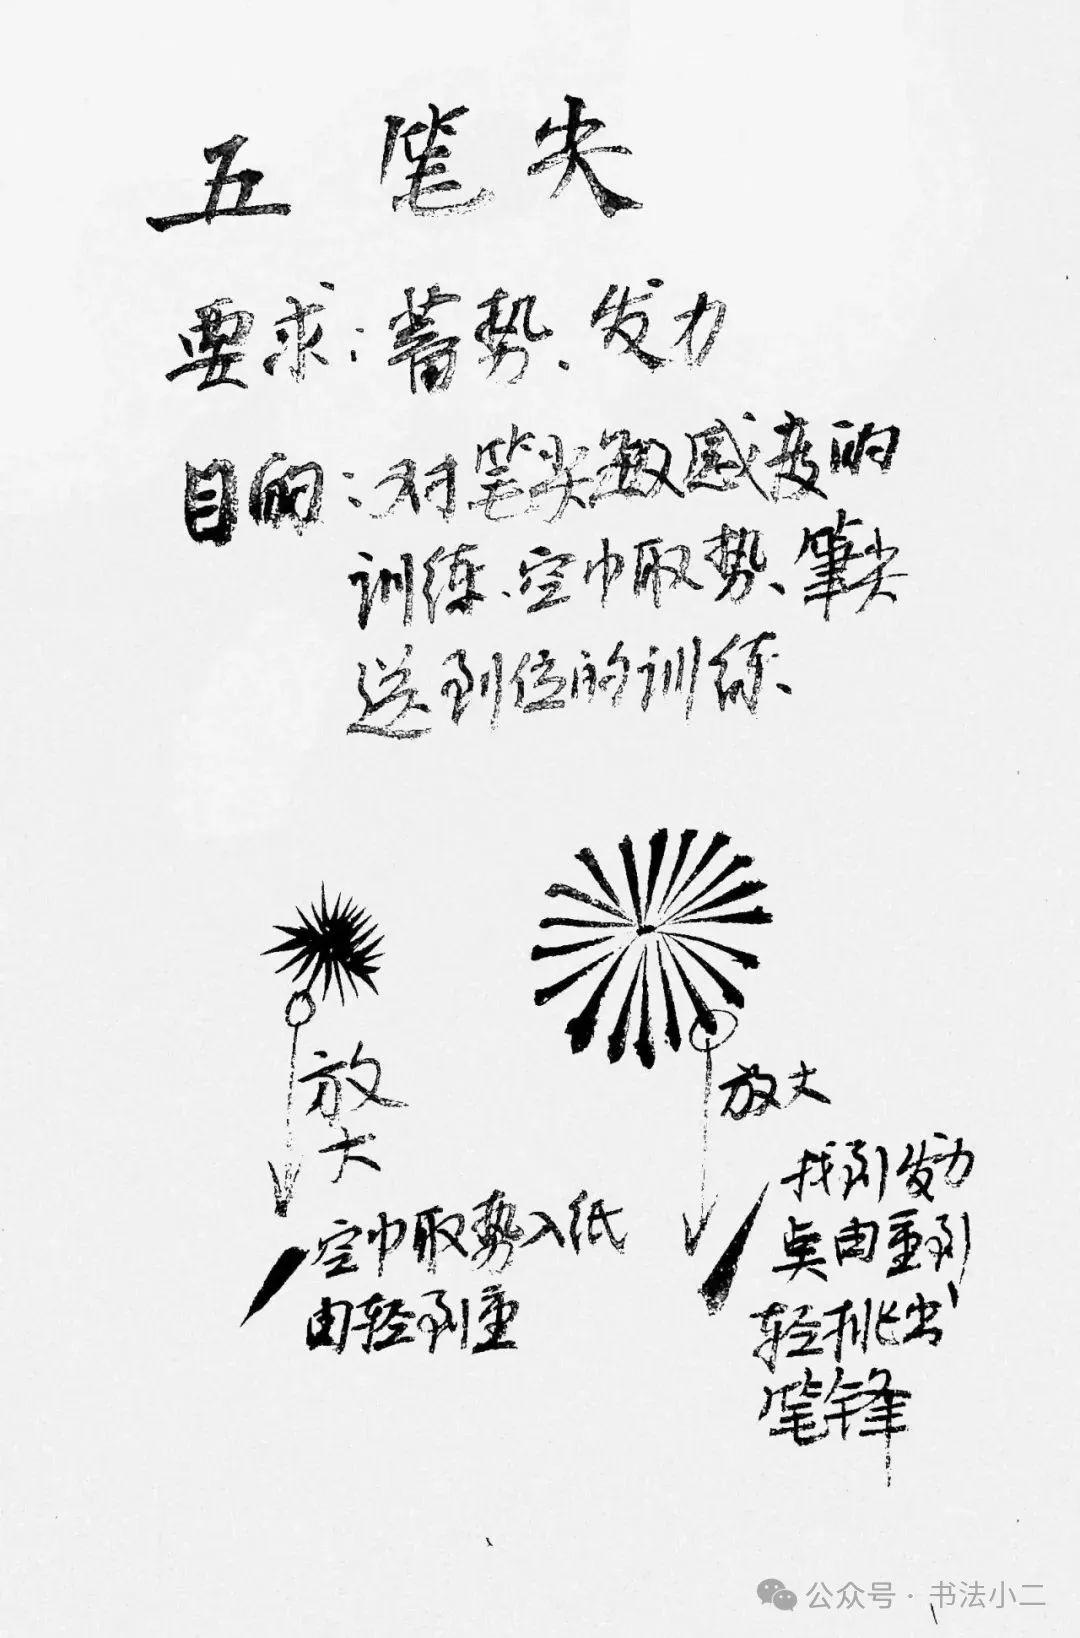 五 笔尖
要求：蓄势、发力
目的：对笔尖敏感度的
训练、空中取势、筆尖
送到位的训练、
放
大
空中取势入纸
由轻到重
放大
找到发力
点由重到
轻挑出
笔锋
公众号·书法小二